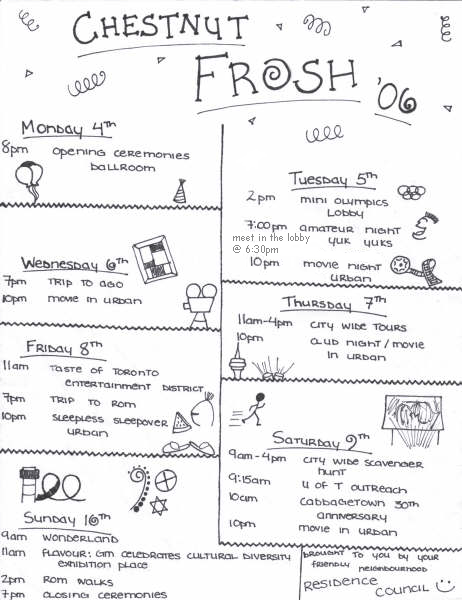 CHESTNUT
FROSH '06
MONDAY 4TH
8pm OPENING CEREMONIES
BALLROOM
TUESDAY 5TH
2pm MINI OLYMPICS
LOBBY
7:00pm AMATEUR NIGHT
YUK YUKS
meet in the lobby
@ 6:30pm
10pm MOVIE NIGHT
URBAN
WEDNESDAY 6TH
7pm TRIP TO AGO
10pm MOVIE IN URBAN
THURSDAY 7TH
11am-4pm CITY WIDE TOURS
10pm CLUB NIGHT/MOVIE
IN URBAN
FRIDAY 8TH
11am TASTE OF TORONTO
ENTERTAINMENT DISTRICT
7pm TRIP TO ROM
10pm SLEEPLESS SLEEPOVER
URBAN
SATURDAY 9TH
9am-4pm CITY WIDE SCAVENGER
HUNT
9:15am U OF T OUTREACH
10am CABBAGETOWN 30TH
ANNIVERSARY
10pm MOVIE IN URBAN
SUNDAY 10TH
9am WONDERLAND
11am FLAVOUR: GM CELEBRATES CULTURAL DIVERSITY
EXHIBITION PLACE
2pm ROM WALKS
7pm CLOSING CEREMONIES
BROUGHT TO YOU BY YOUR
FRIENDLY NEIGHBOURHOOD
RESIDENCE
COUNCIL